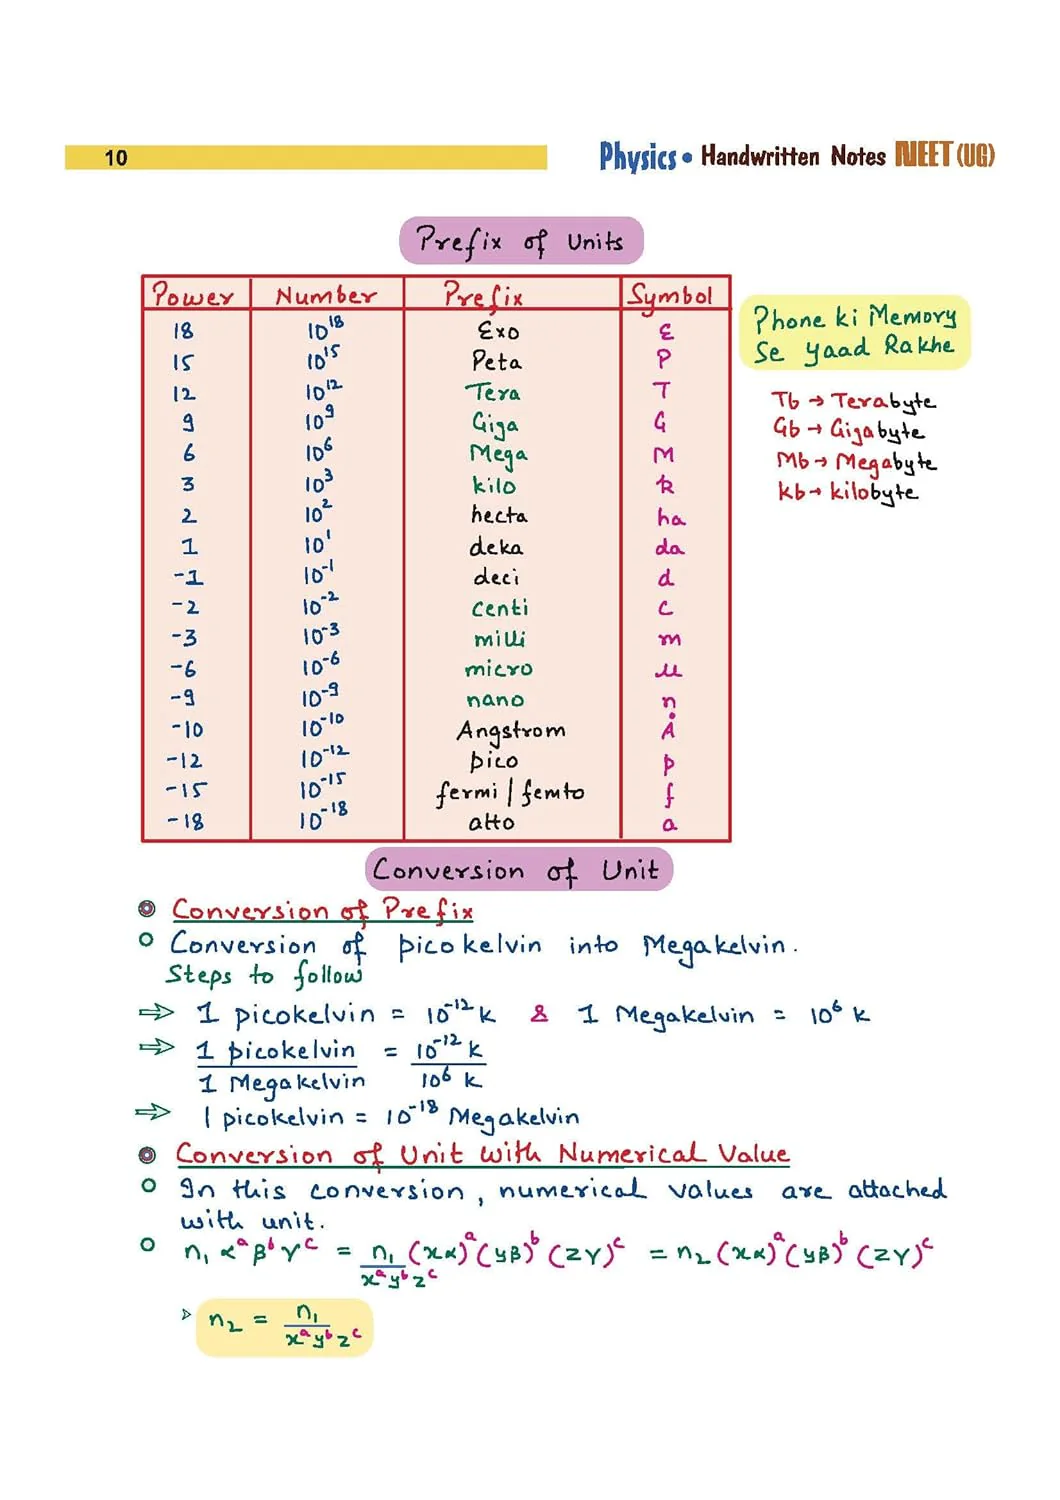 10
Physics • Handwritten Notes NEET (UG)
Prefix of Units
Power Number Prefix Symbol
18 10^18 Exo E
15 10^15 Peta P
12 10^12 Tera T
9 10^9 Giga G
6 10^6 Mega M
3 10^3 kilo k
2 10^2 hecta ha
1 10^1 deka da
-1 10^-1 deci d
-2 10^-2 centi c
-3 10^-3 milli m
-6 10^-6 micro μ
-9 10^-9 nano n
-10 10^-10 Angstrom Å
-12 10^-12 pico p
-15 10^-15 fermi / femto f
-18 10^-18 atto a
Phone ki Memory
Se yaad Rakhe
Tb → Terabyte
Gb → Gigabyte
Mb → Megabyte
kb → kilobyte
Conversion of Unit
Conversion of Prefix
Conversion of picokelvin into Megakelvin.
Steps to follow
⇒ 1 picokelvin = 10^-12 K & 1 Megakelvin = 10^6 K
⇒ 1 picokelvin / 1 Megakelvin = 10^-12 K / 10^6 K
⇒ 1 picokelvin = 10^-18 Megakelvin
Conversion of Unit with Numerical Value
In this conversion, numerical values are attached
with unit.
n₁ α^a β^b γ^c = n₁ / x^a y^b z^c (xα)^a (yβ)^b (zγ)^c = n₂ (xα)^a (yβ)^b (zγ)^c
n₂ = n₁ / x^a y^b z^c